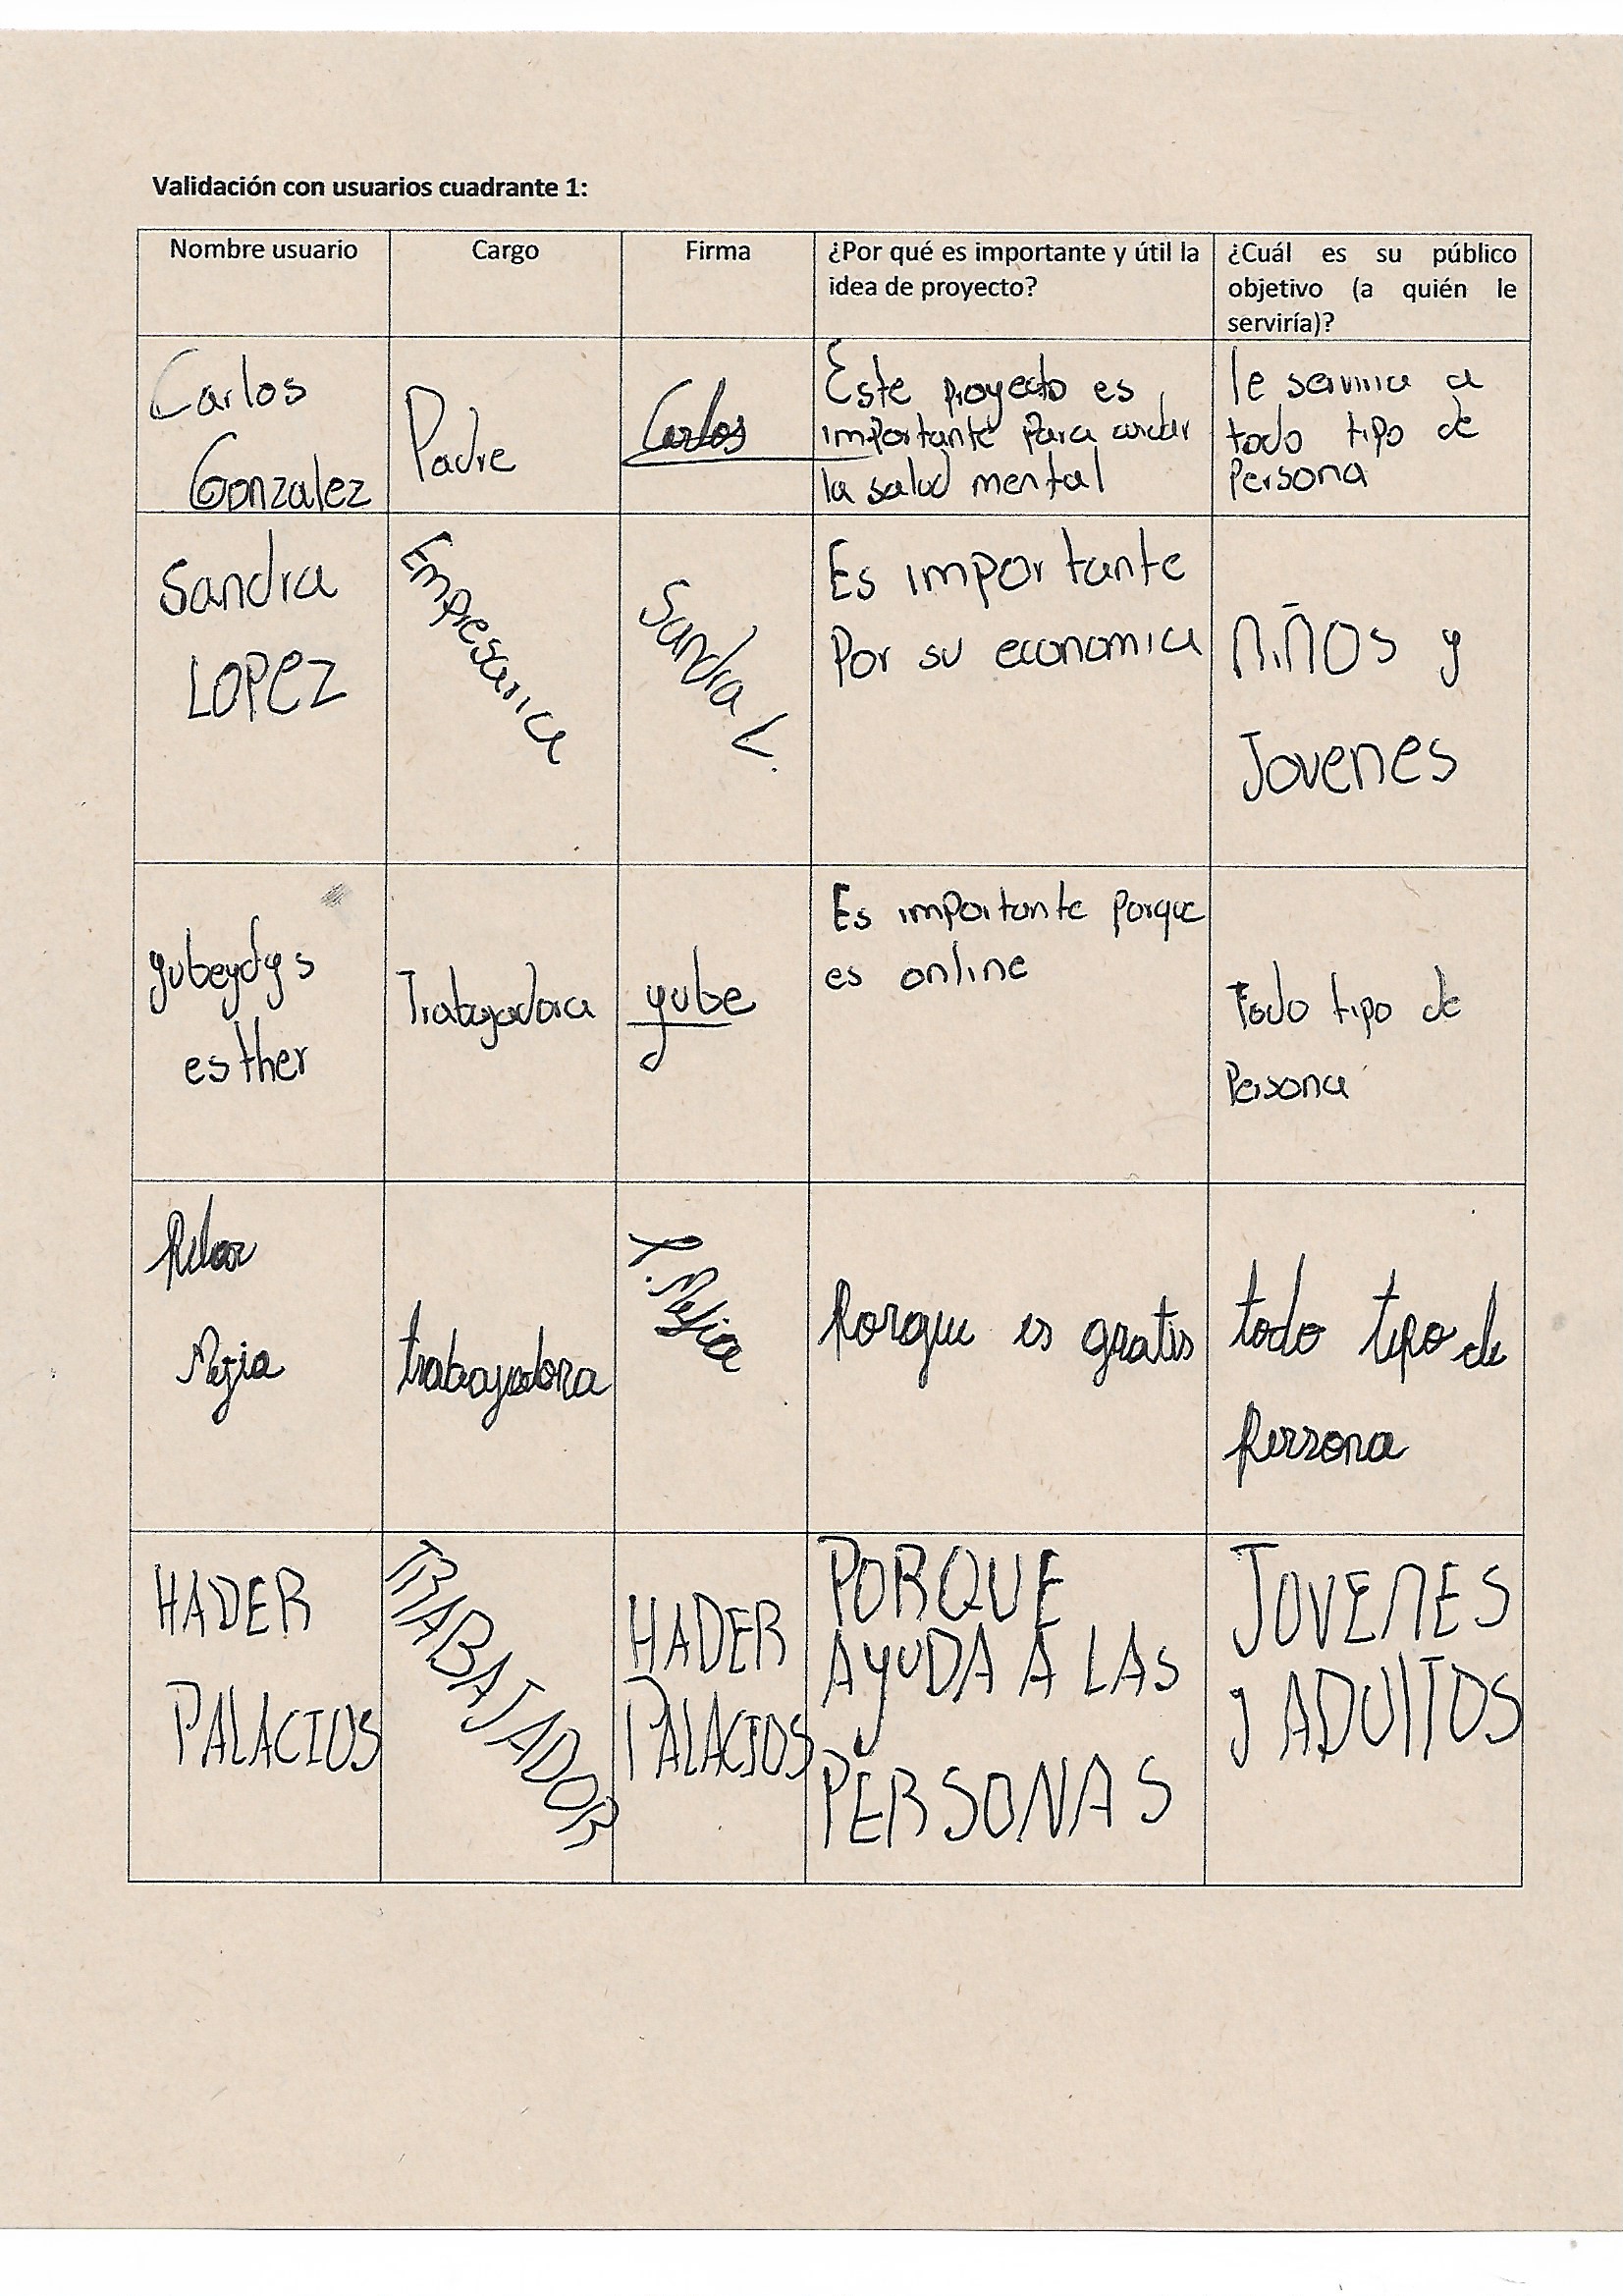 Validación con usuarios cuadrante 1:
Nombre usuario
Cargo
Firma
¿Por qué es importante y útil la
idea de proyecto?
¿Cuál es su público
objetivo (a quién le
serviría)?
Carlos
Gonzalez
Padre
Carlos
Este proyecto es
importante Para cuidar
la salud mental
le serviria a
todo tipo de
Persona
Sandra
LOPEZ
Empresaria
Sandra L.
Es importante
Por su economica
NIÑOS y
Jovenes
yubeydys
esther
Trabajadora
yube
Es importante Porque
es online
Todo tipo de
Persona
Mejia
trabajadora
P. Mejia
Porque es gratis
todo tipo de
Persona
HADER
PALACIOS
TRABAJADOR
HADER
PALACIOS
PORQUE
AyUDA A LAS
PERSONAS
JOVENES
y ADULTOS